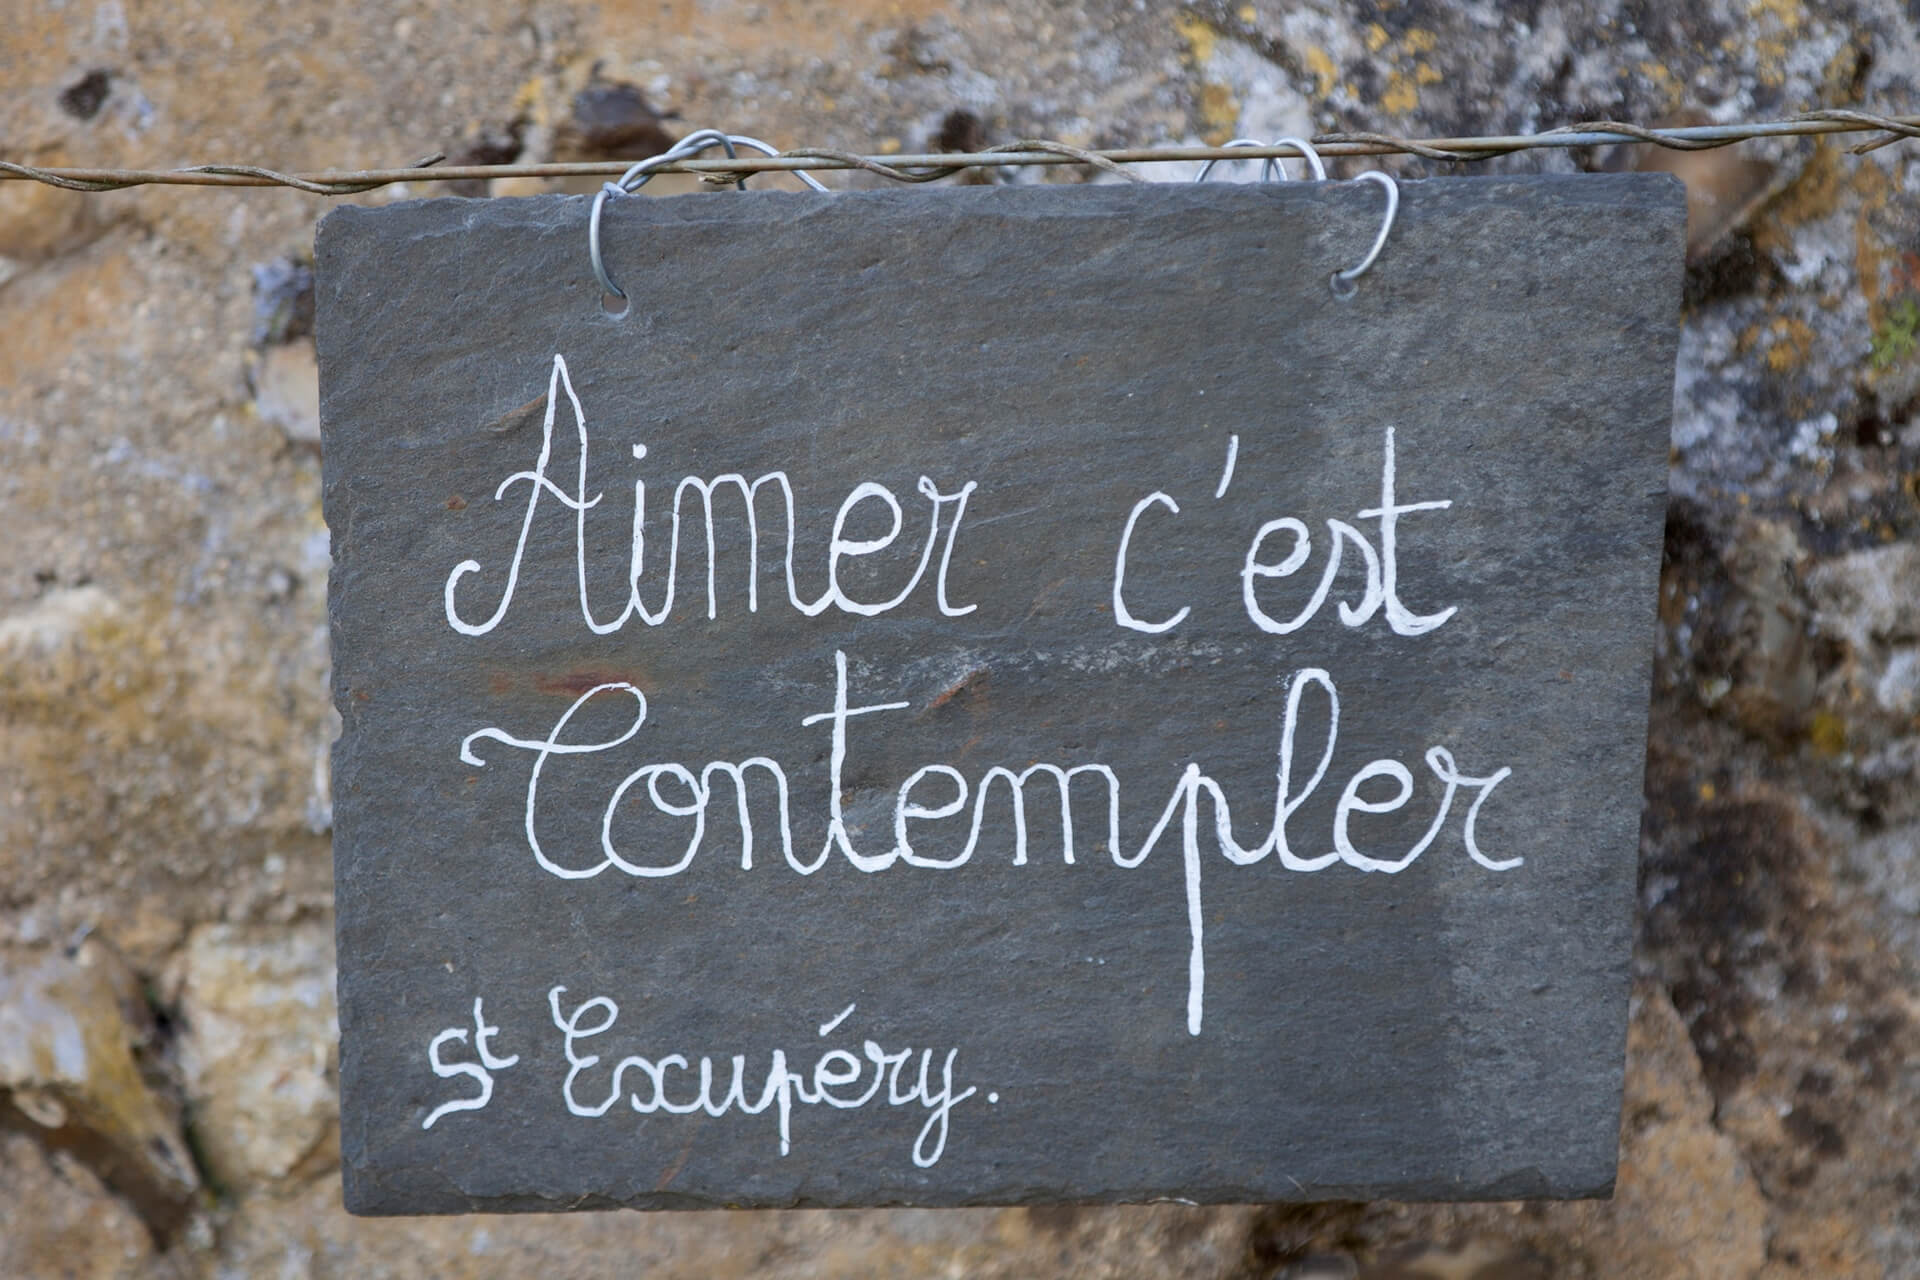 Aimer c'est
Contempler
St Exupéry.